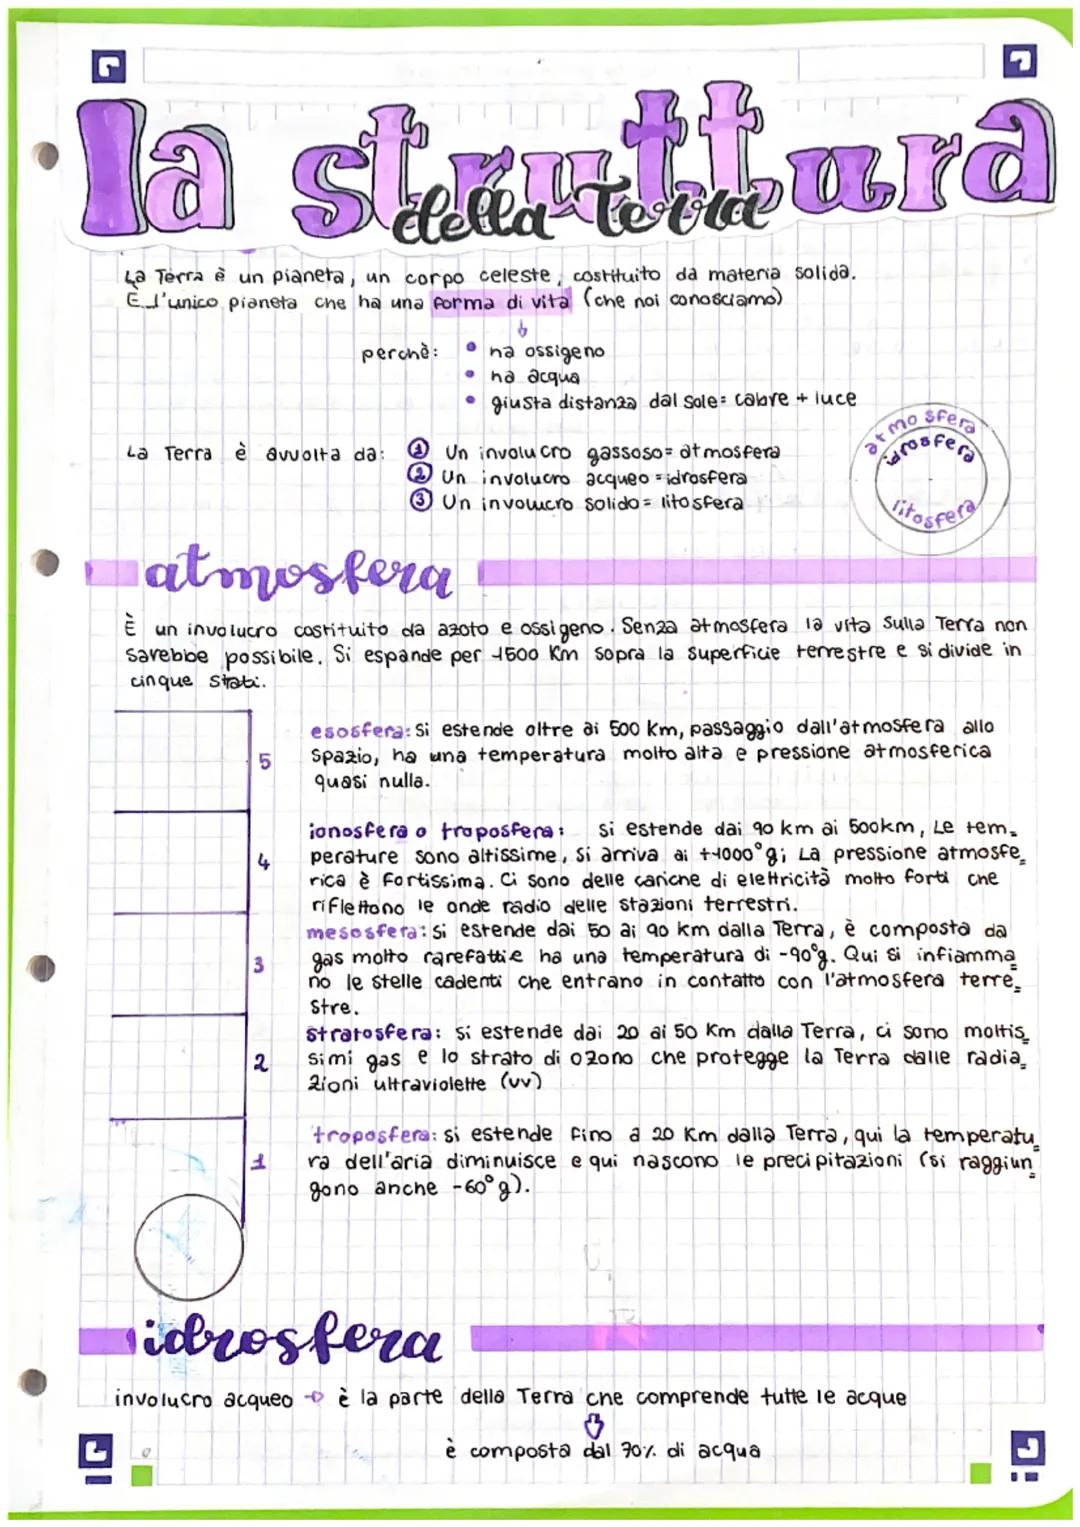 la struttura
della Terra
La Terra è un pianeta, un corpo celeste, costituito da materia solida.
È l'unico pianeta che ha una forma di vita (che noi conosciamo)
perchè:
• ha ossigeno
• ha acqua
• giusta distanza dal sole= calore + luce
La Terra è avvolta da:
① Un involucro gassoso= atmosfera
② Un involucro acqueo =idrosfera
③ Un involucro solido= litosfera
atmosfera
idrosfera
litosfera
atmosfera
È un involucro costituito da azoto e ossigeno. Senza atmosfera la vita sulla Terra non
sarebbe possibile. Si espande per 1500 Km sopra la superficie terrestre e si divide in
cinque stati.
5
esosfera: si estende oltre ai 500 km, passaggio dall'atmosfera allo
spazio, ha una temperatura molto alta e pressione atmosferica
quasi nulla.
4
ionosfera o troposfera: si estende dai 90 km ai 500km, Le tem-
perature sono altissime, si arriva ai +1000°g; La pressione atmosfe-
rica è fortissima. Ci sono delle cariche di elettricità molto forti che
riflettono le onde radio delle stazioni terrestri.
3
mesosfera: si estende dai 50 ai 90 km dalla Terra, è composta da
gas molto rarefatti e ha una temperatura di -90°g. Qui si infiamma
no le stelle cadenti che entrano in contatto con l'atmosfera terre-
stre.
2
stratosfera: si estende dai 20 ai 50 Km dalla Terra, ci sono moltis-
simi gas e lo strato di ozono che protegge la Terra dalle radia-
zioni ultraviolette (UV)
1
troposfera: si estende fino a 20 Km dalla Terra, qui la temperatu-
ra dell'aria diminuisce e qui nascono le precipitazioni (si raggiun-
gono anche -60°g).
idrosfera
involucro acqueo → è la parte della Terra che comprende tutte le acque
è composta dal 70% di acqua